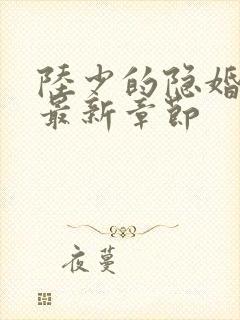 陸少的隐婚
最新章節
夜蔓